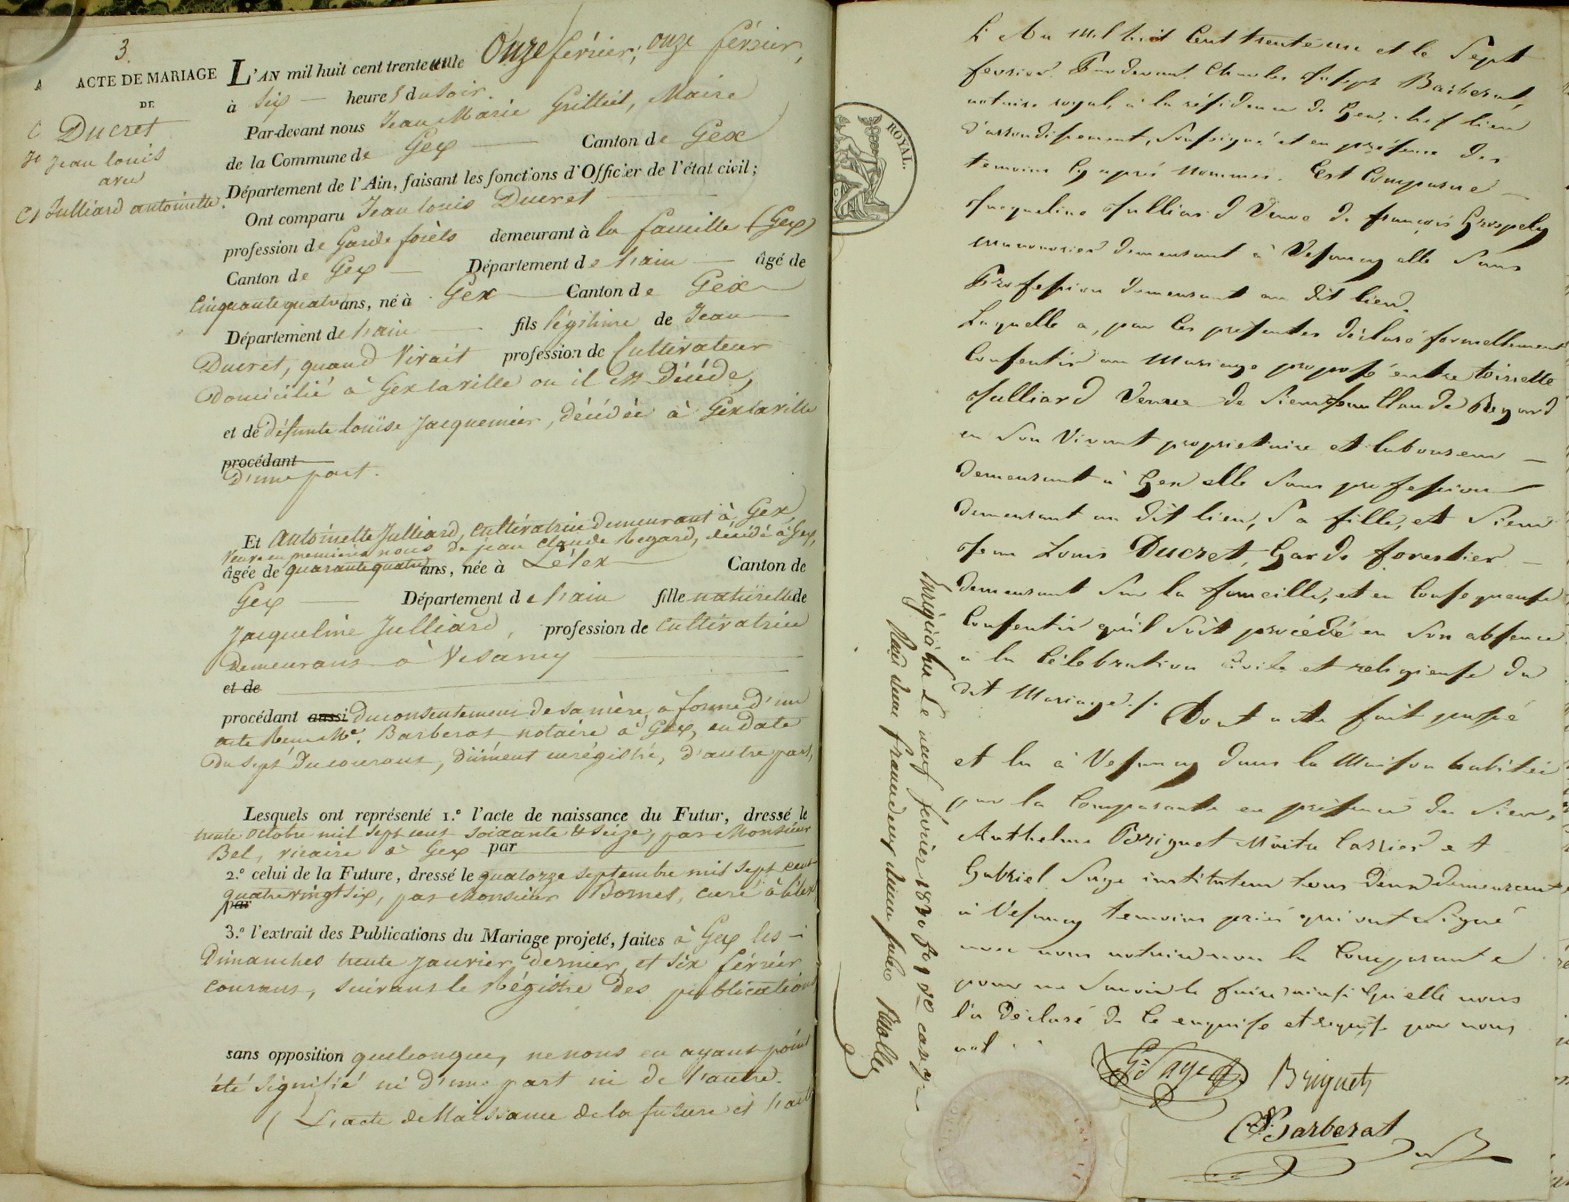 3.
ACTE DE MARIAGE
DE
Ducret
Jean Louis
avec
Julliard antoinette.
L'AN mil huit cent trente un le Onze février, onze février,
à Six heures du Soir.
Par-devant nous Jean Marie Grilliet, Maire
de la Commune de Gex Canton de Gex
Département de l'Ain, faisant les fonctions d'Officier de l'état civil;
Ont comparu Jean louis Ducret
profession de Garde forêts demeurant à la faucille (Gex)
Canton de Gex Département de l'ain âgé de
Cinquante quatre ans, né à Gex Canton de Gex
Département de l'ain fils légitime de Jean
Ducret, quand Vivait profession de Cultivateur
Domicilié à Gex la ville ou il est Décédé,
et de défunte louise Jacquemier, décédée à Gex la ville
procédant
D'une part.
Et Antoinette Julliard, cultivatrice demeurant à Gex,
Veuve en premières noces de jean Claude Regard, décédé à Gex,
âgée de quarante quatre ans, née à Lélex Canton de
Gex Département de l'ain fille naturelle de
Jacqueline Julliard, profession de cultivatrice
Demeurant à Vesancy
et de
procédant aussi Du consentement de sa mère, à forme d'un
acte Reçu Me. Barberat notaire à Gex, en Date
Du Sept Du courant, Dûment enrégistré, d'autre part,
Lesquels ont représenté 1.º l'acte de naissance du Futur, dressé le
trente octobre mil sept cent soixante et seize, par Monsieur
Bel, vicaire à Gex par
2.º celui de la Future, dressé le quatorze septembre mil sept cent
quatre vingt six, par Monsieur Bornet, curé à Lélex
par
3.º l'extrait des Publications du Mariage projeté, faites à Gex les
Dimanches trente janvier dernier, et six février
courant, suivant le Régistre des publications
sans opposition quelconque, ne nous en ayant point
été signifié ni d'une part ni de l'autre.
( L'acte de Naissance de la future et l'acte
ROYAL.
L'An Mil huit Cent trente un et le Sept
fevrier. Pardevant Charles Joseph Barberat,
notaire royal, à la résidence de Gex, chef lieu
d'arrondissement, Soussigné et en présence des
temoins cy après Nommés. Est Comparue
Jacqueline Julliard Veuve de françois Grospely
demeurant à Vesancy elle Sans
Profession demeurant au dit lieu,
Laquelle a, par les présentes déclaré formellement
Consentir au Mariage proposé entre
Julliard Veuve de Sieur Jean Claude Regard
en Son Vivant propriétaire et laboureur
demeurant à Gex elle Sans profession
demeurant au dit lieu, Sa fille, et Sieur
Jean Louis Ducret, Garde forestier
demeurant Sur la fauceille, et en Conséquence
Consentir qu'il Soit procédé en Son absence
à la Célébration Civile et religieuse du
dit Mariage./. Dont acte fait passé
et lu à Vesancy dans la Maison habitée
par la Comparante en présence de Sieur
Anthelme Briguet et
Gabriel Sage instituteur tous deux demeurants
à Vesancy temoins priés qui ont Signé
avec nous notaire non la Comparante
pour ne Savoir le faire ainsi qu'elle nous
l'a Déclaré de Ce enquise et requise par nous
not..
Enrégistré à Gex Le neuf février 1831 fo
Reçu deux francs deux dixièmes
G. Sage Briguet
Ch. Barberat